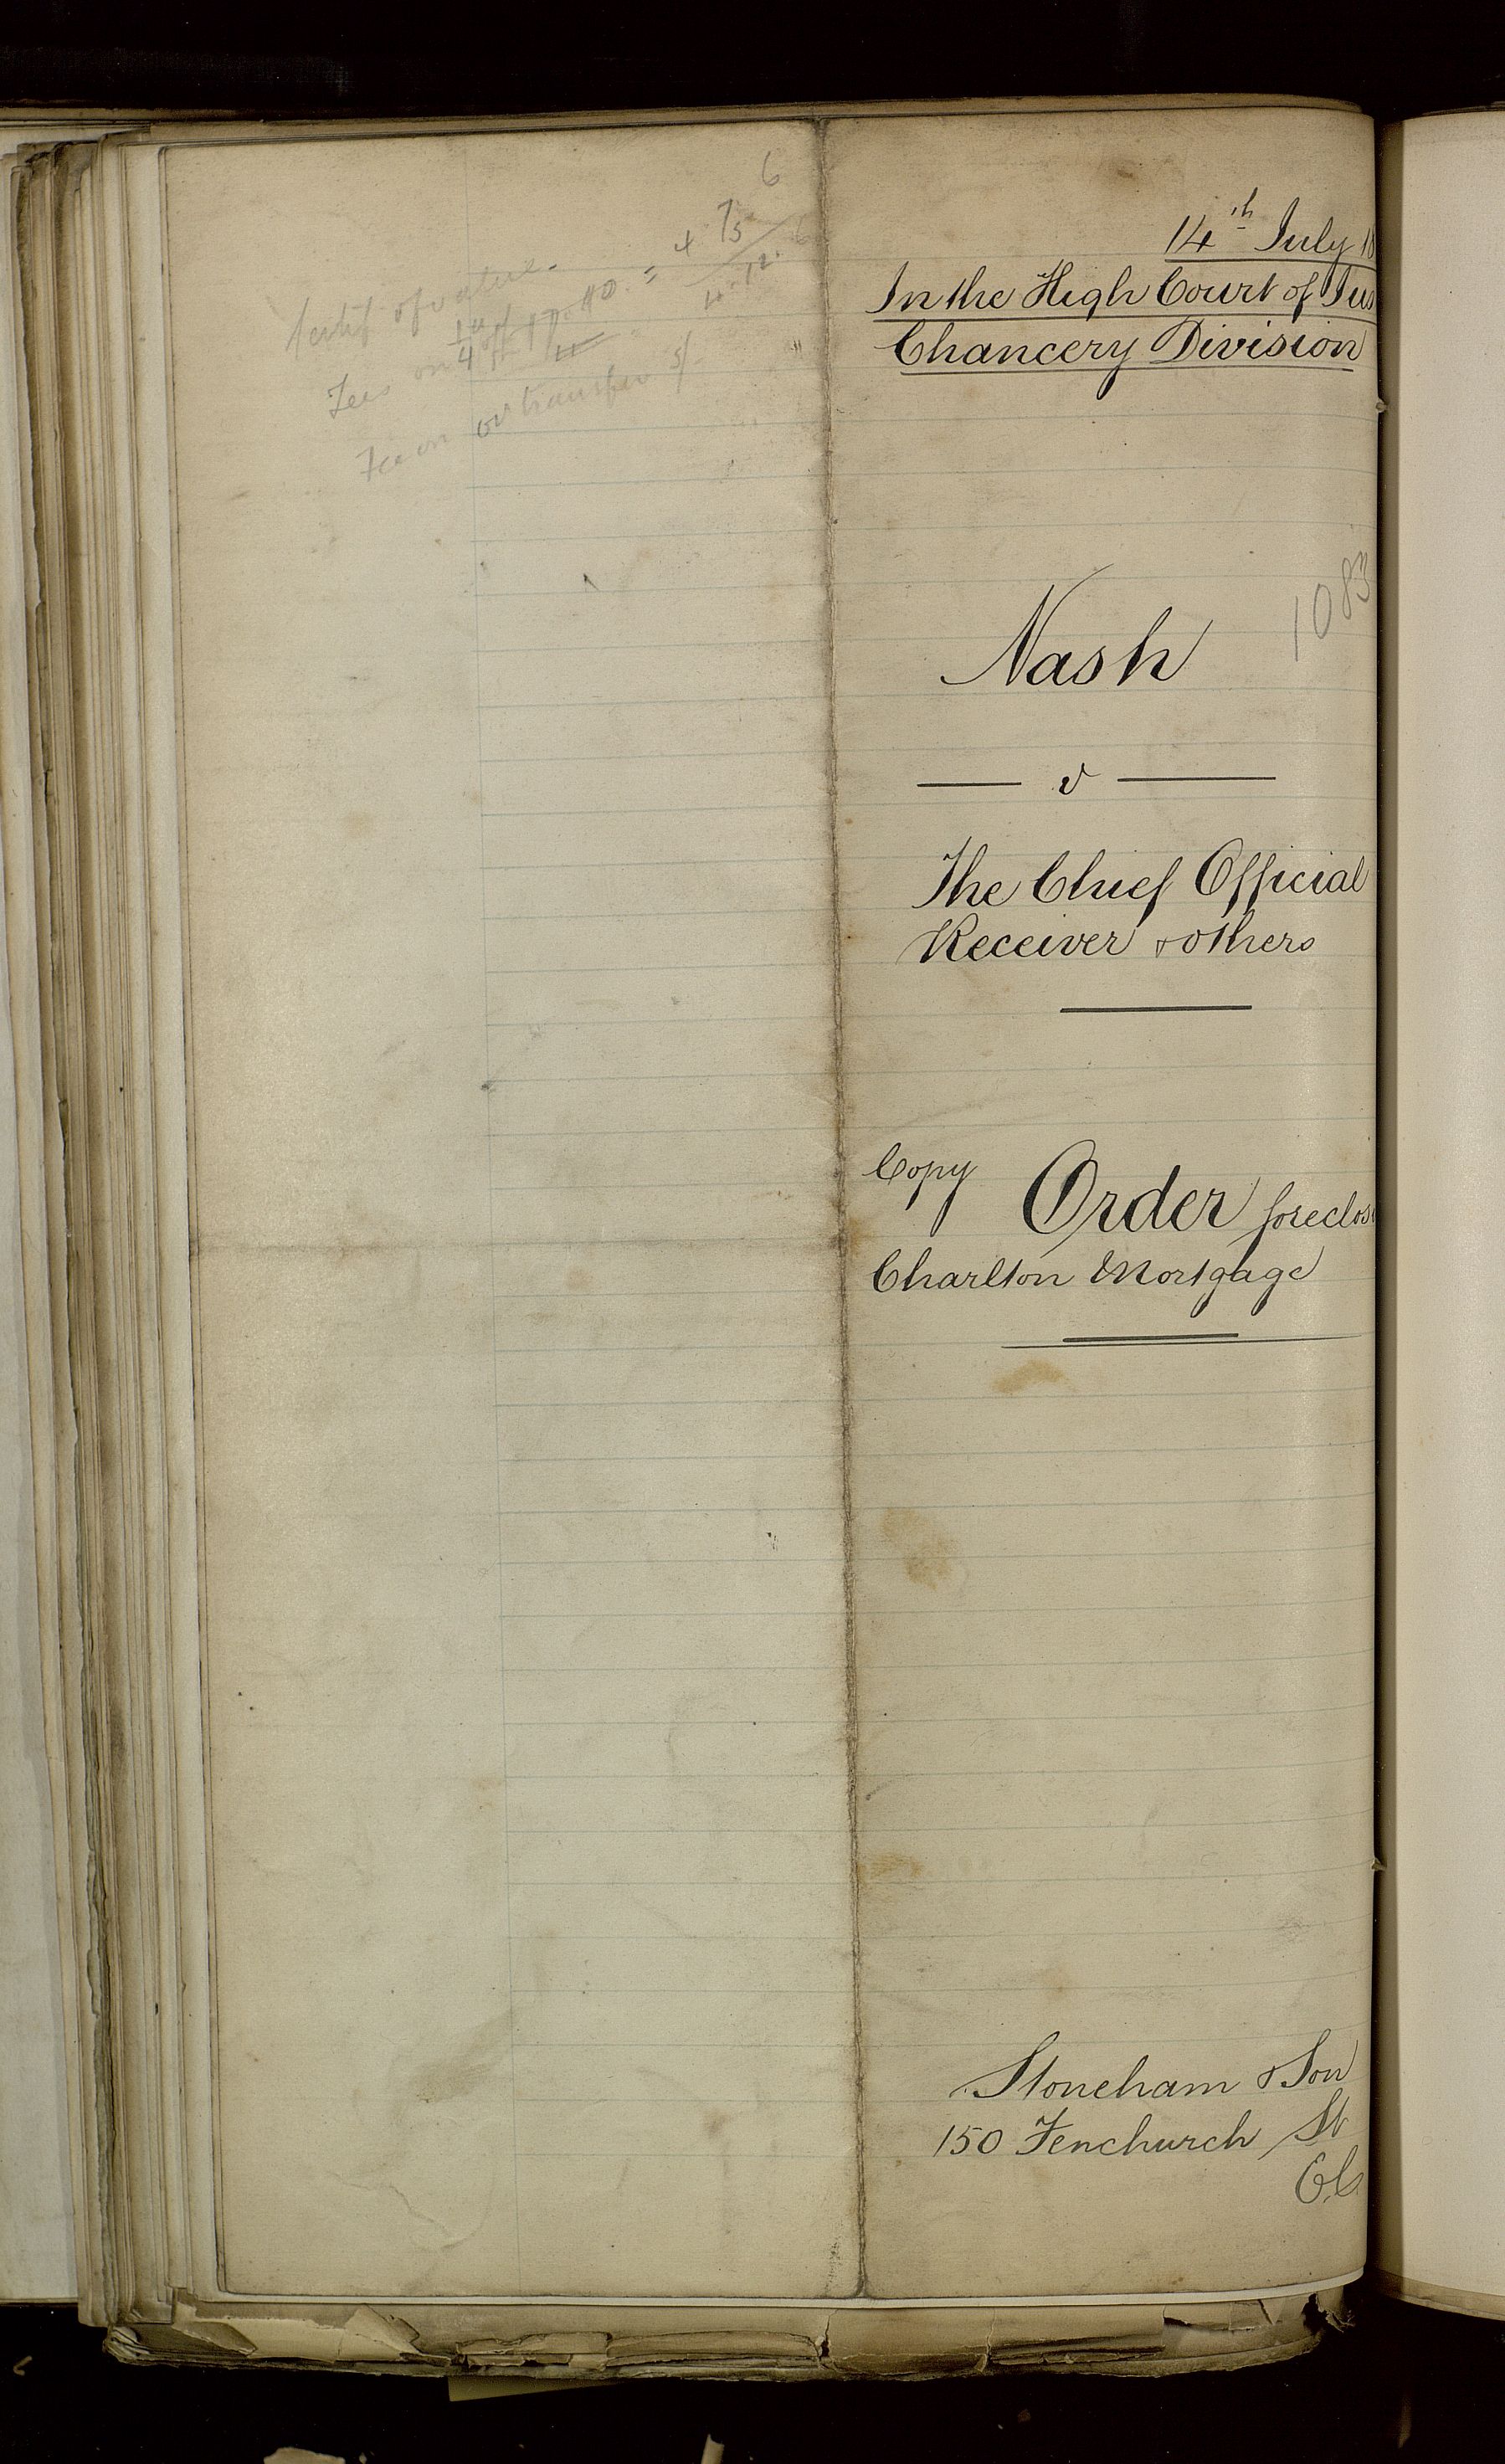 certif of value
6
Fees on 1/4 of
4 7 5
Fee on transfer 5/-
14th July 18
In the High Court of Jus
Chancery Division
1083
Nash
v
The Chief Official
Receiver & others
Copy Order foreclos
Charlton Mortgage
Stoneham & Son
150 Fenchurch St
E.C.